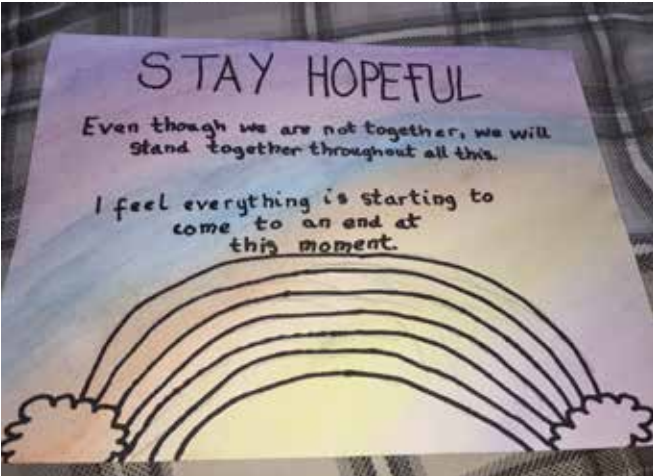 STAY HOPEFUL
Even though we are not together, we will
Stand together throughout all this.
I feel everything is starting to
come to an end at
this moment.